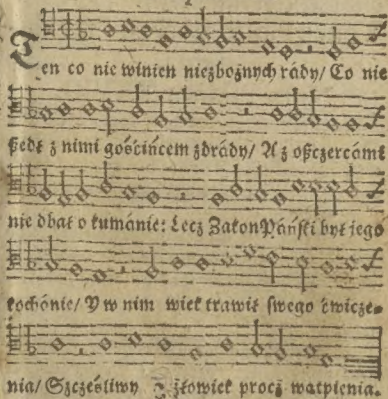 Ten co nie winien niezbożnych rády/ Co nie
ßedł z nimi gośćińcem zdrády/ A z oßczercámi
nie dbał o kumánie: Lecz Zakon Páński był jego
kochánie/ Y w nim wiek trawił swego ćwicze-
nia/ Szczęśliwy człowiek procż wątpienia.